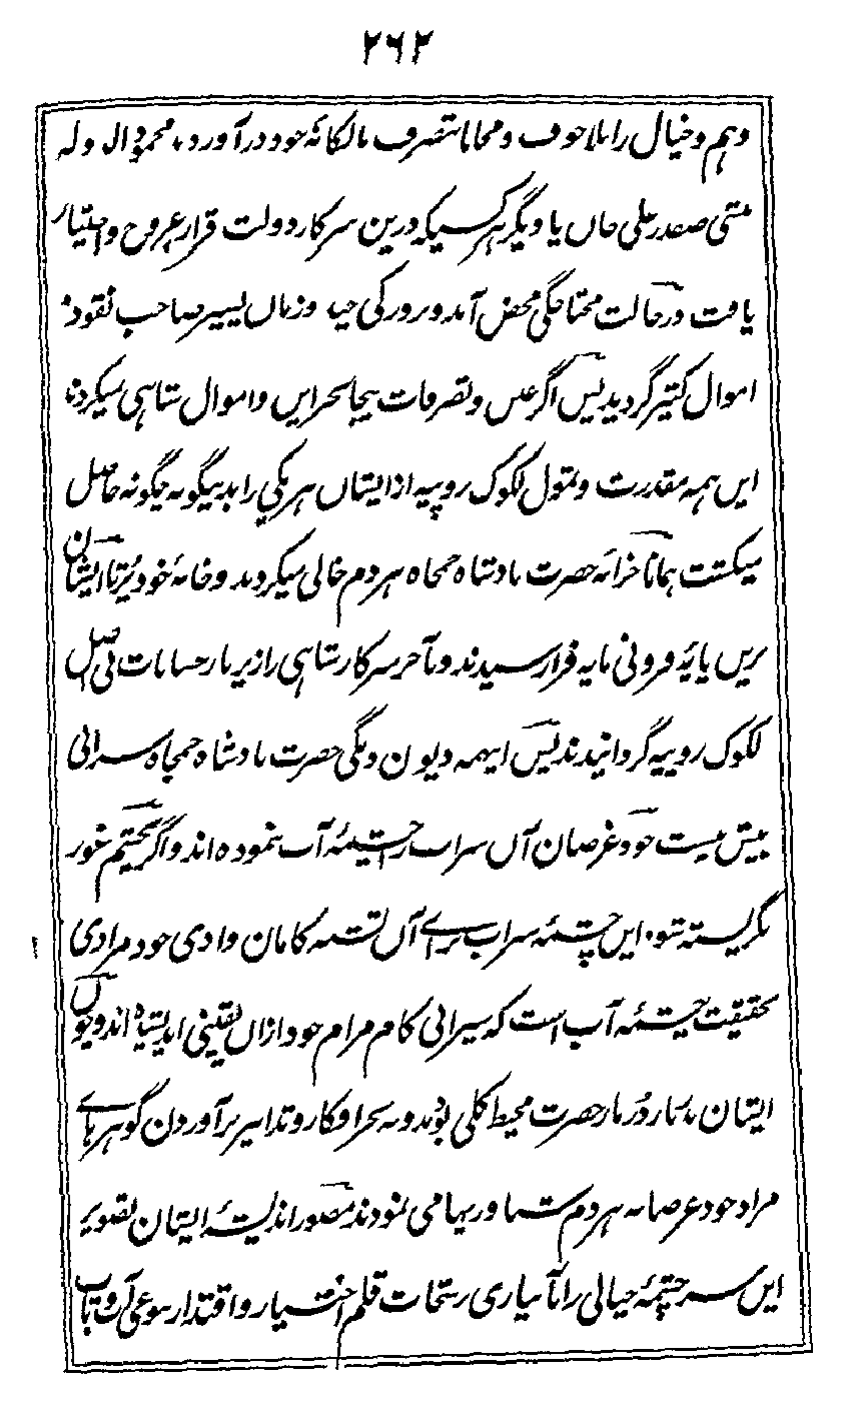 ۲۶۲
وہم و خیال را بلا خوف و محابا بتصرف مالکانۂ خود در آورد، محمود الدولہ
منشی صفدر علی خاں یا دیگر ہر کسیکہ درین سرکار دولت قرار عروج و اختیار
یافت در حالت محتاجگی محض آمد و روزکی چند و زمان یسیر صاحب نقود و
اموال کثیر گردید پس اگر غبن و تصرفات بیجا بخزاین و اموال شاہی نمیکردند
این ہمہ مقدرت و تمول لکوک روپیہ از ایشاں ہر یکے را بدینگونہ چگونہ حاصل
میگشت ہمانا خزانہ حضرت بادشاہ جمجاہ ہر دم خالی میکردند و خانۂ خود پر تا ایشان
برین پایۂ فزونی مایہ فرا رسیدند و بآخر سرکار شاہی را زیر بار حسابات بی اصل
لکوک روپیہ گردانیدند پس اینہمہ دیون دمگی حضرت بادشاہ جمجاہ سرابی
بیش نیست خود غرضان آں سراب را چشمۂ آب بنموده اند و اگر بچشم غور
نگریسته شود این چشمۂ سراب برائے آں تشنہ کامان وادی خود مرادی
بحقیقت چشمۂ آب است کہ سیرابی کام مرام خود ازاں یقینی اندیشیده اند و چوں
ایشان بدربار دربار حضرت محیط کلی بودند و بہ بحر افکار و تدابیر بر آوردن گوہرہائے
مراد خود غرضانہ ہر دم شناوریہا می نمودند مصور اندیشۂ ایشان تصویر
این سرچشمۂ خیالی را بآبیاری رشحات قلم اختیار و اقتدار بنوعی آب و تاب